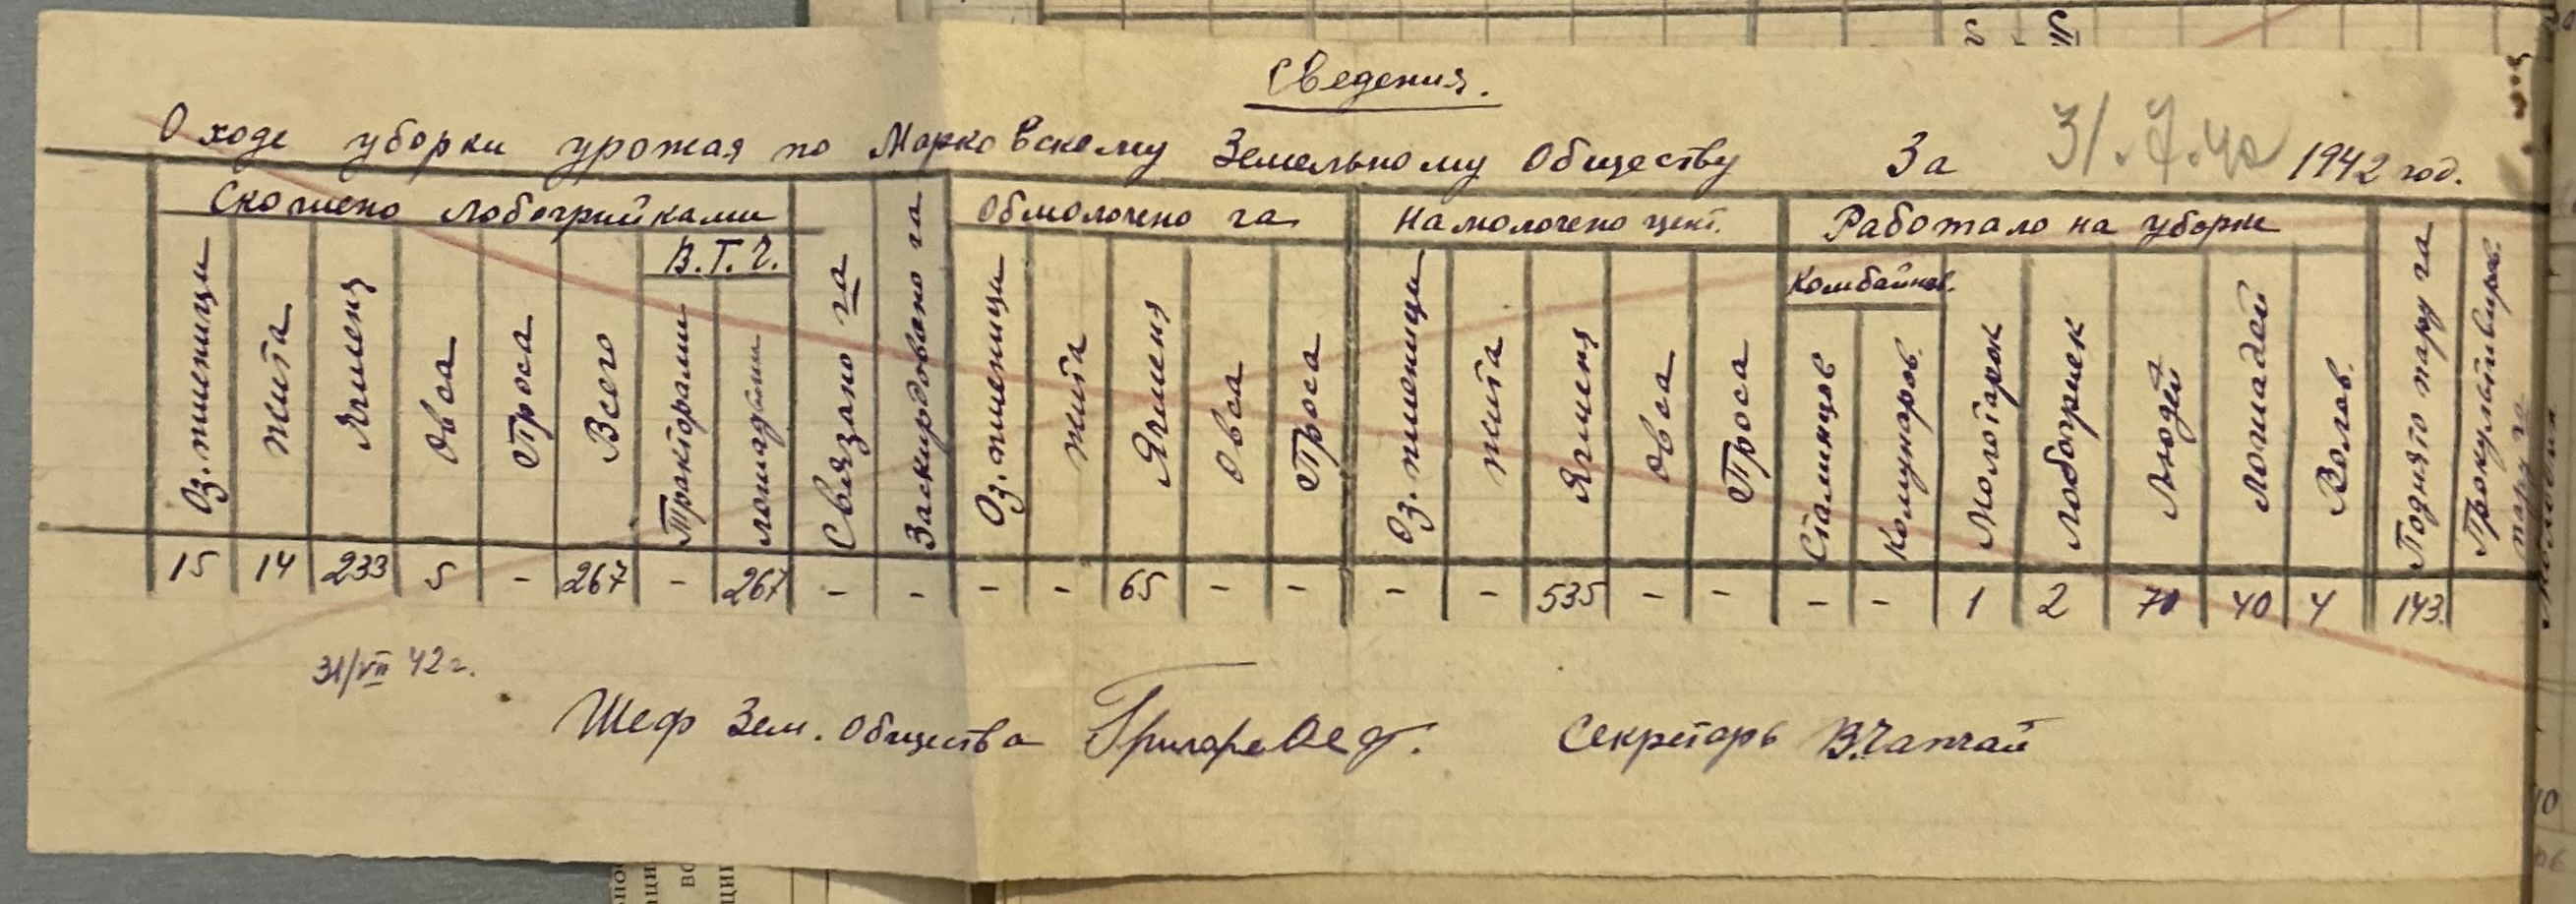 Сведения.
О ходе уборки урожая по Марковскому Земельному Обществу За 31.7.42 1942 год.
Скошено лобогрийками
Обмолочено га
Намолочено цент.
Работало на уборки
В.Т.Ч.
Комбайнов.
Оз. пшеници
Жита
Ячменя
Овса
Проса
Всего
Тракторами
лошадьми
Связано га
Заскирдовано га
Оз. пшеници
Жита
Ячменя
Овса
Проса
Оз. пшеници
Жита
Ячменя
Овса
Проса
Сталинцов
Комунаров.
Молотарок
Лобогриек
Людей
Лошадей
Волов.
Поднято пару га
Прокультивиров.
пару га
15 14 233 5 - 267 - 267 - - - - 65 - - - - 535 - - - - 1 2 70 40 4 143.
31/VII 42 г.
Шеф Зем. Общества Секретарь